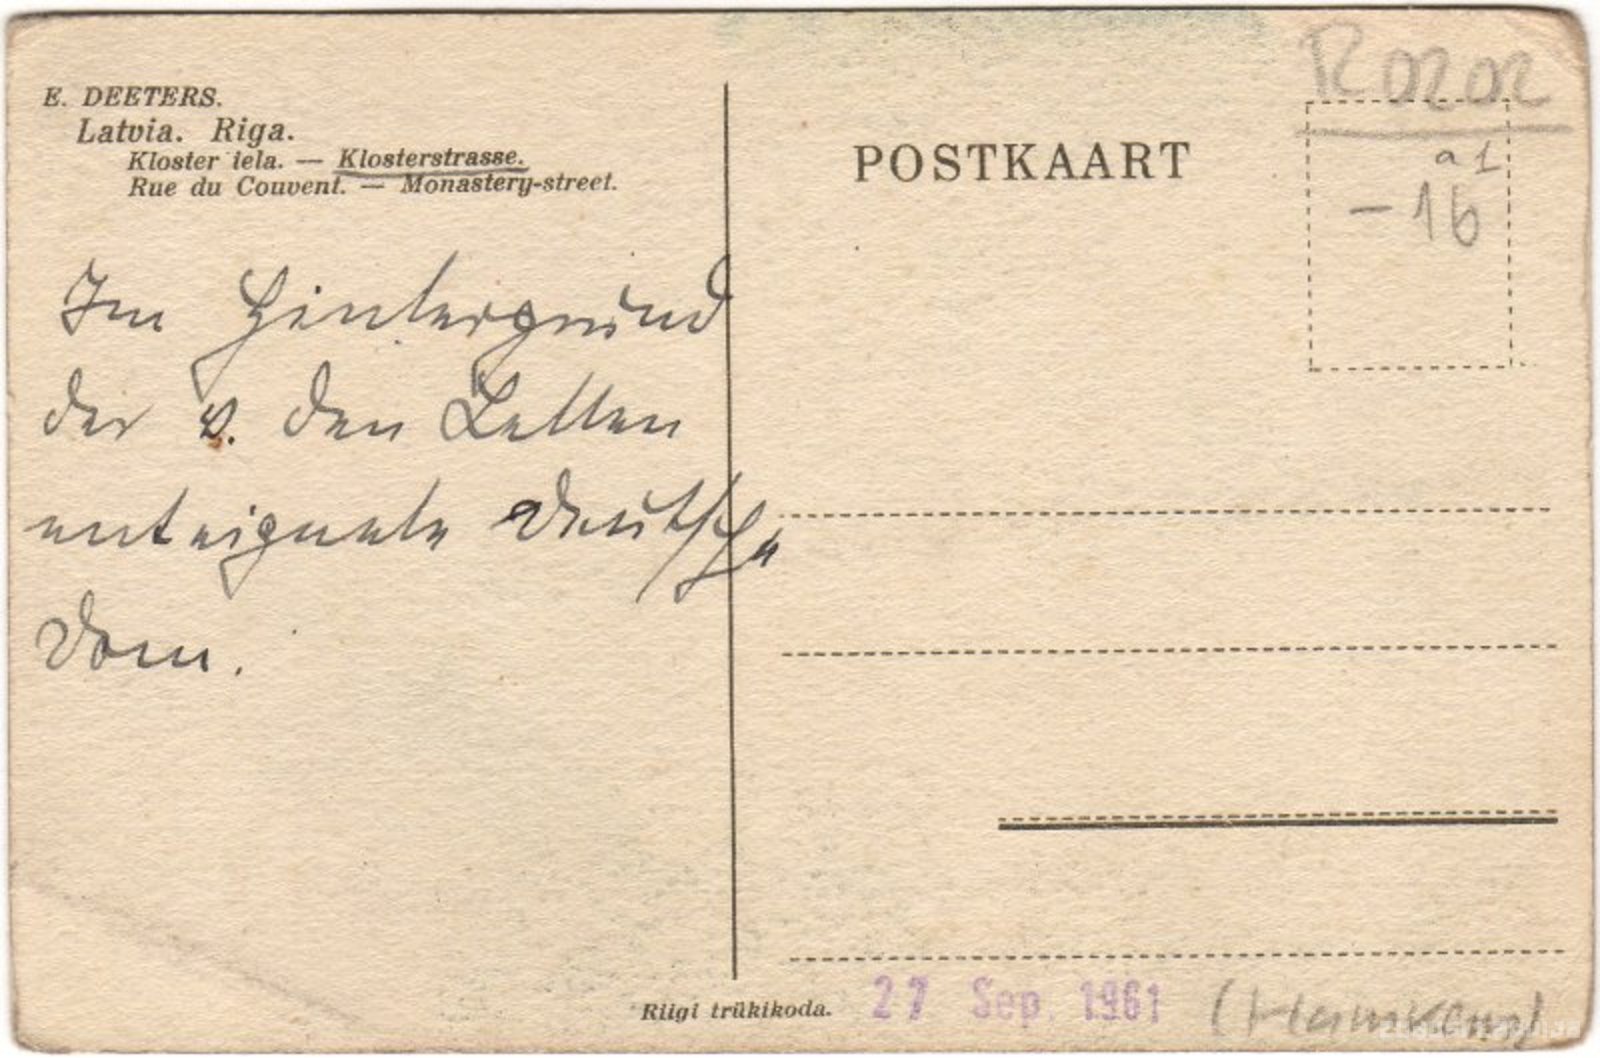 E. DEETERS.
Latvia. Riga.
Kloster iela. — Klosterstrasse.
Rue du Couvent. — Monastery-street.
POSTKAART
R 0202
a1
- 16
Im Hintergrund
der v. den Letten
enteignete Deutsche
Dom.
Riigi trükikoda.
27 Sep. 1961